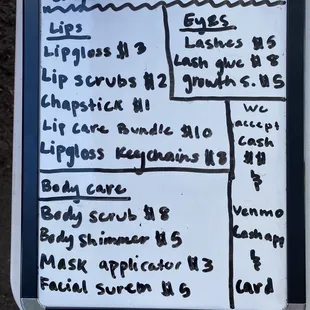 Lips
Lipgloss $3
Lip scrubs $2
Chapstick $1
Lip care Bundle $10
Lipgloss Keychains $8
Eyes
Lashes $5
Lash glue $8
growth s. $5
Body care
Body scrub $8
Body shimmer $5
Mask applicator $3
Facial surem $5
We
accept
Cash
$$
&
Venmo
Cashapp
&
Card